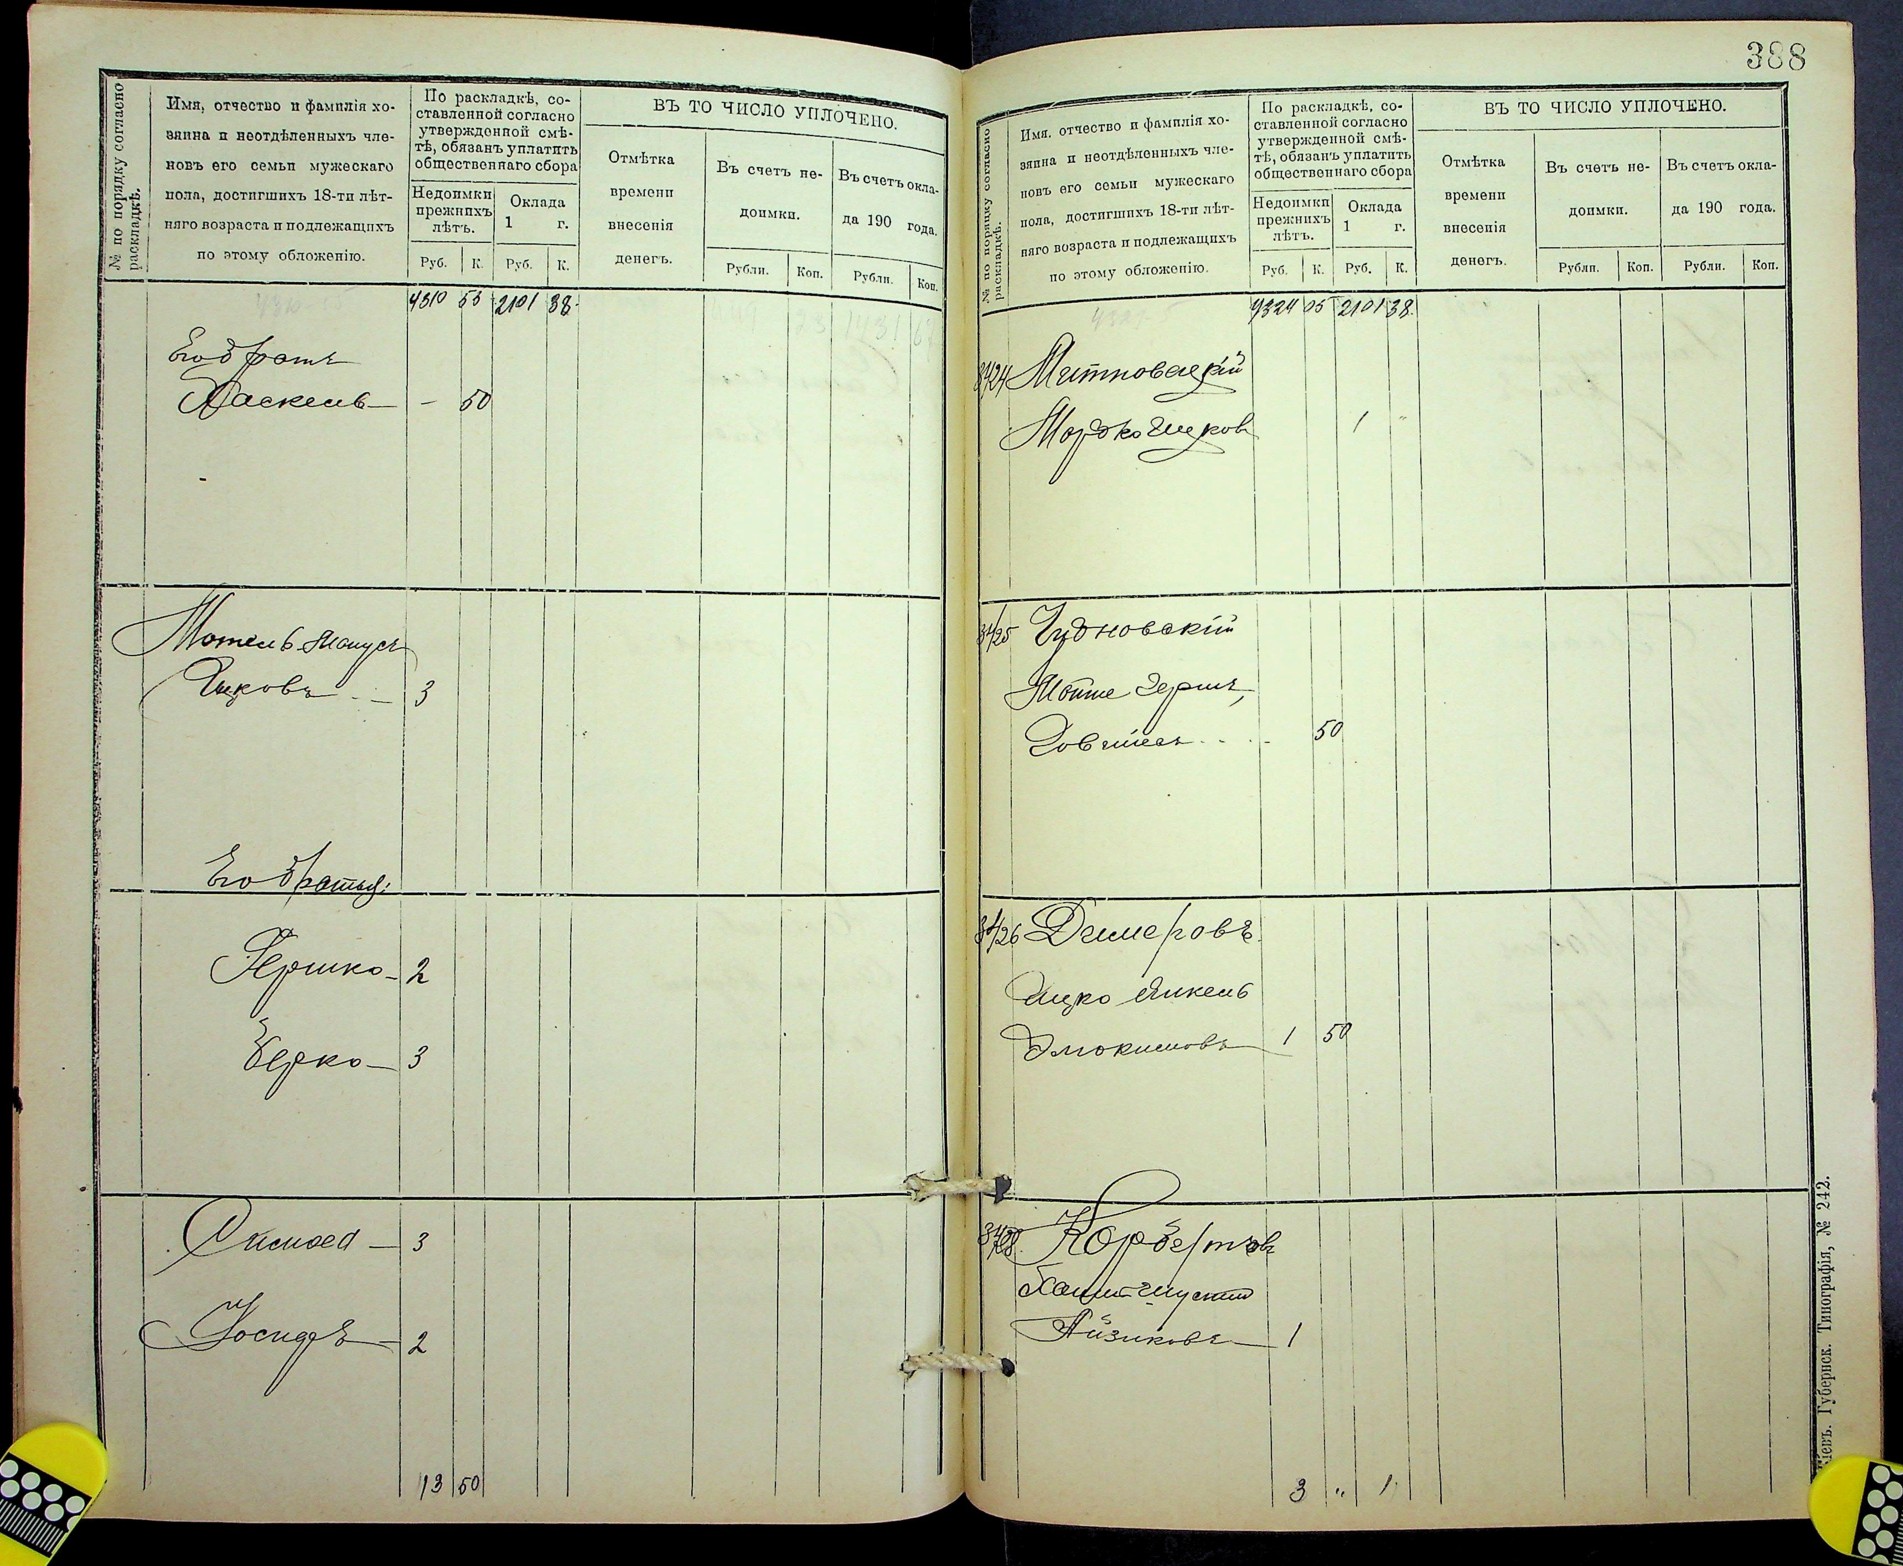 № по порядку согласно
раскладкѣ.
Имя, отчество и фамилія хо-
зяина и неотдѣленныхъ чле-
новъ его семьи мужескаго
пола, достигшихъ 18-ти лѣт-
няго возраста и подлежащихъ
по этому обложенію.
По раскладкѣ, со-
ставленной согласно
утвержденной смѣ-
тѣ, обязанъ уплатить
общественнаго сбора
Недоимки
прежнихъ
лѣтъ.
Оклада
1 г.
Руб. К. Руб. К.
ВЪ ТО ЧИСЛО УПЛОЧЕНО.
Отмѣтка
времени
внесенія
денегъ.
Въ счетъ не-
доимки.
Въ счетъ окла-
да 190 года.
Рубли. Коп. Рубли. Коп.
4310 55 2101 38
Его братъ
Хаскель — - 50
Мотель Манусъ
Ицковъ - 3
Его братья:
Гершко - 2
Берко - 3
3
Іосифъ - 2
13 50
388
№ по порядку согласно
раскладкѣ.
Имя, отчество и фамилія хо-
зяина и неотдѣленныхъ чле-
новъ его семьи мужескаго
пола, достигшихъ 18-ти лѣт-
няго возраста и подлежащихъ
по этому обложенію.
По раскладкѣ, со-
ставленной согласно
утвержденной смѣ-
тѣ, обязанъ уплатить
общественнаго сбора
Недоимки
прежнихъ
лѣтъ.
Оклада
1 г.
Руб. К. Руб. К.
ВЪ ТО ЧИСЛО УПЛОЧЕНО.
Отмѣтка
времени
внесенія
денегъ.
Въ счетъ не-
доимки.
Въ счетъ окла-
да 190 года.
Рубли. Коп. Рубли. Коп.
4324 05 2101 38
3424 Митновецкій
Мордко Ицков 1 "
3425 Чудновскій
Мойше Гершъ,
50
3426
Ицко Янкель
1 50
Айзиковъ - 1
3 " 1
Кіевъ. Губернск. Типографія, № 242.